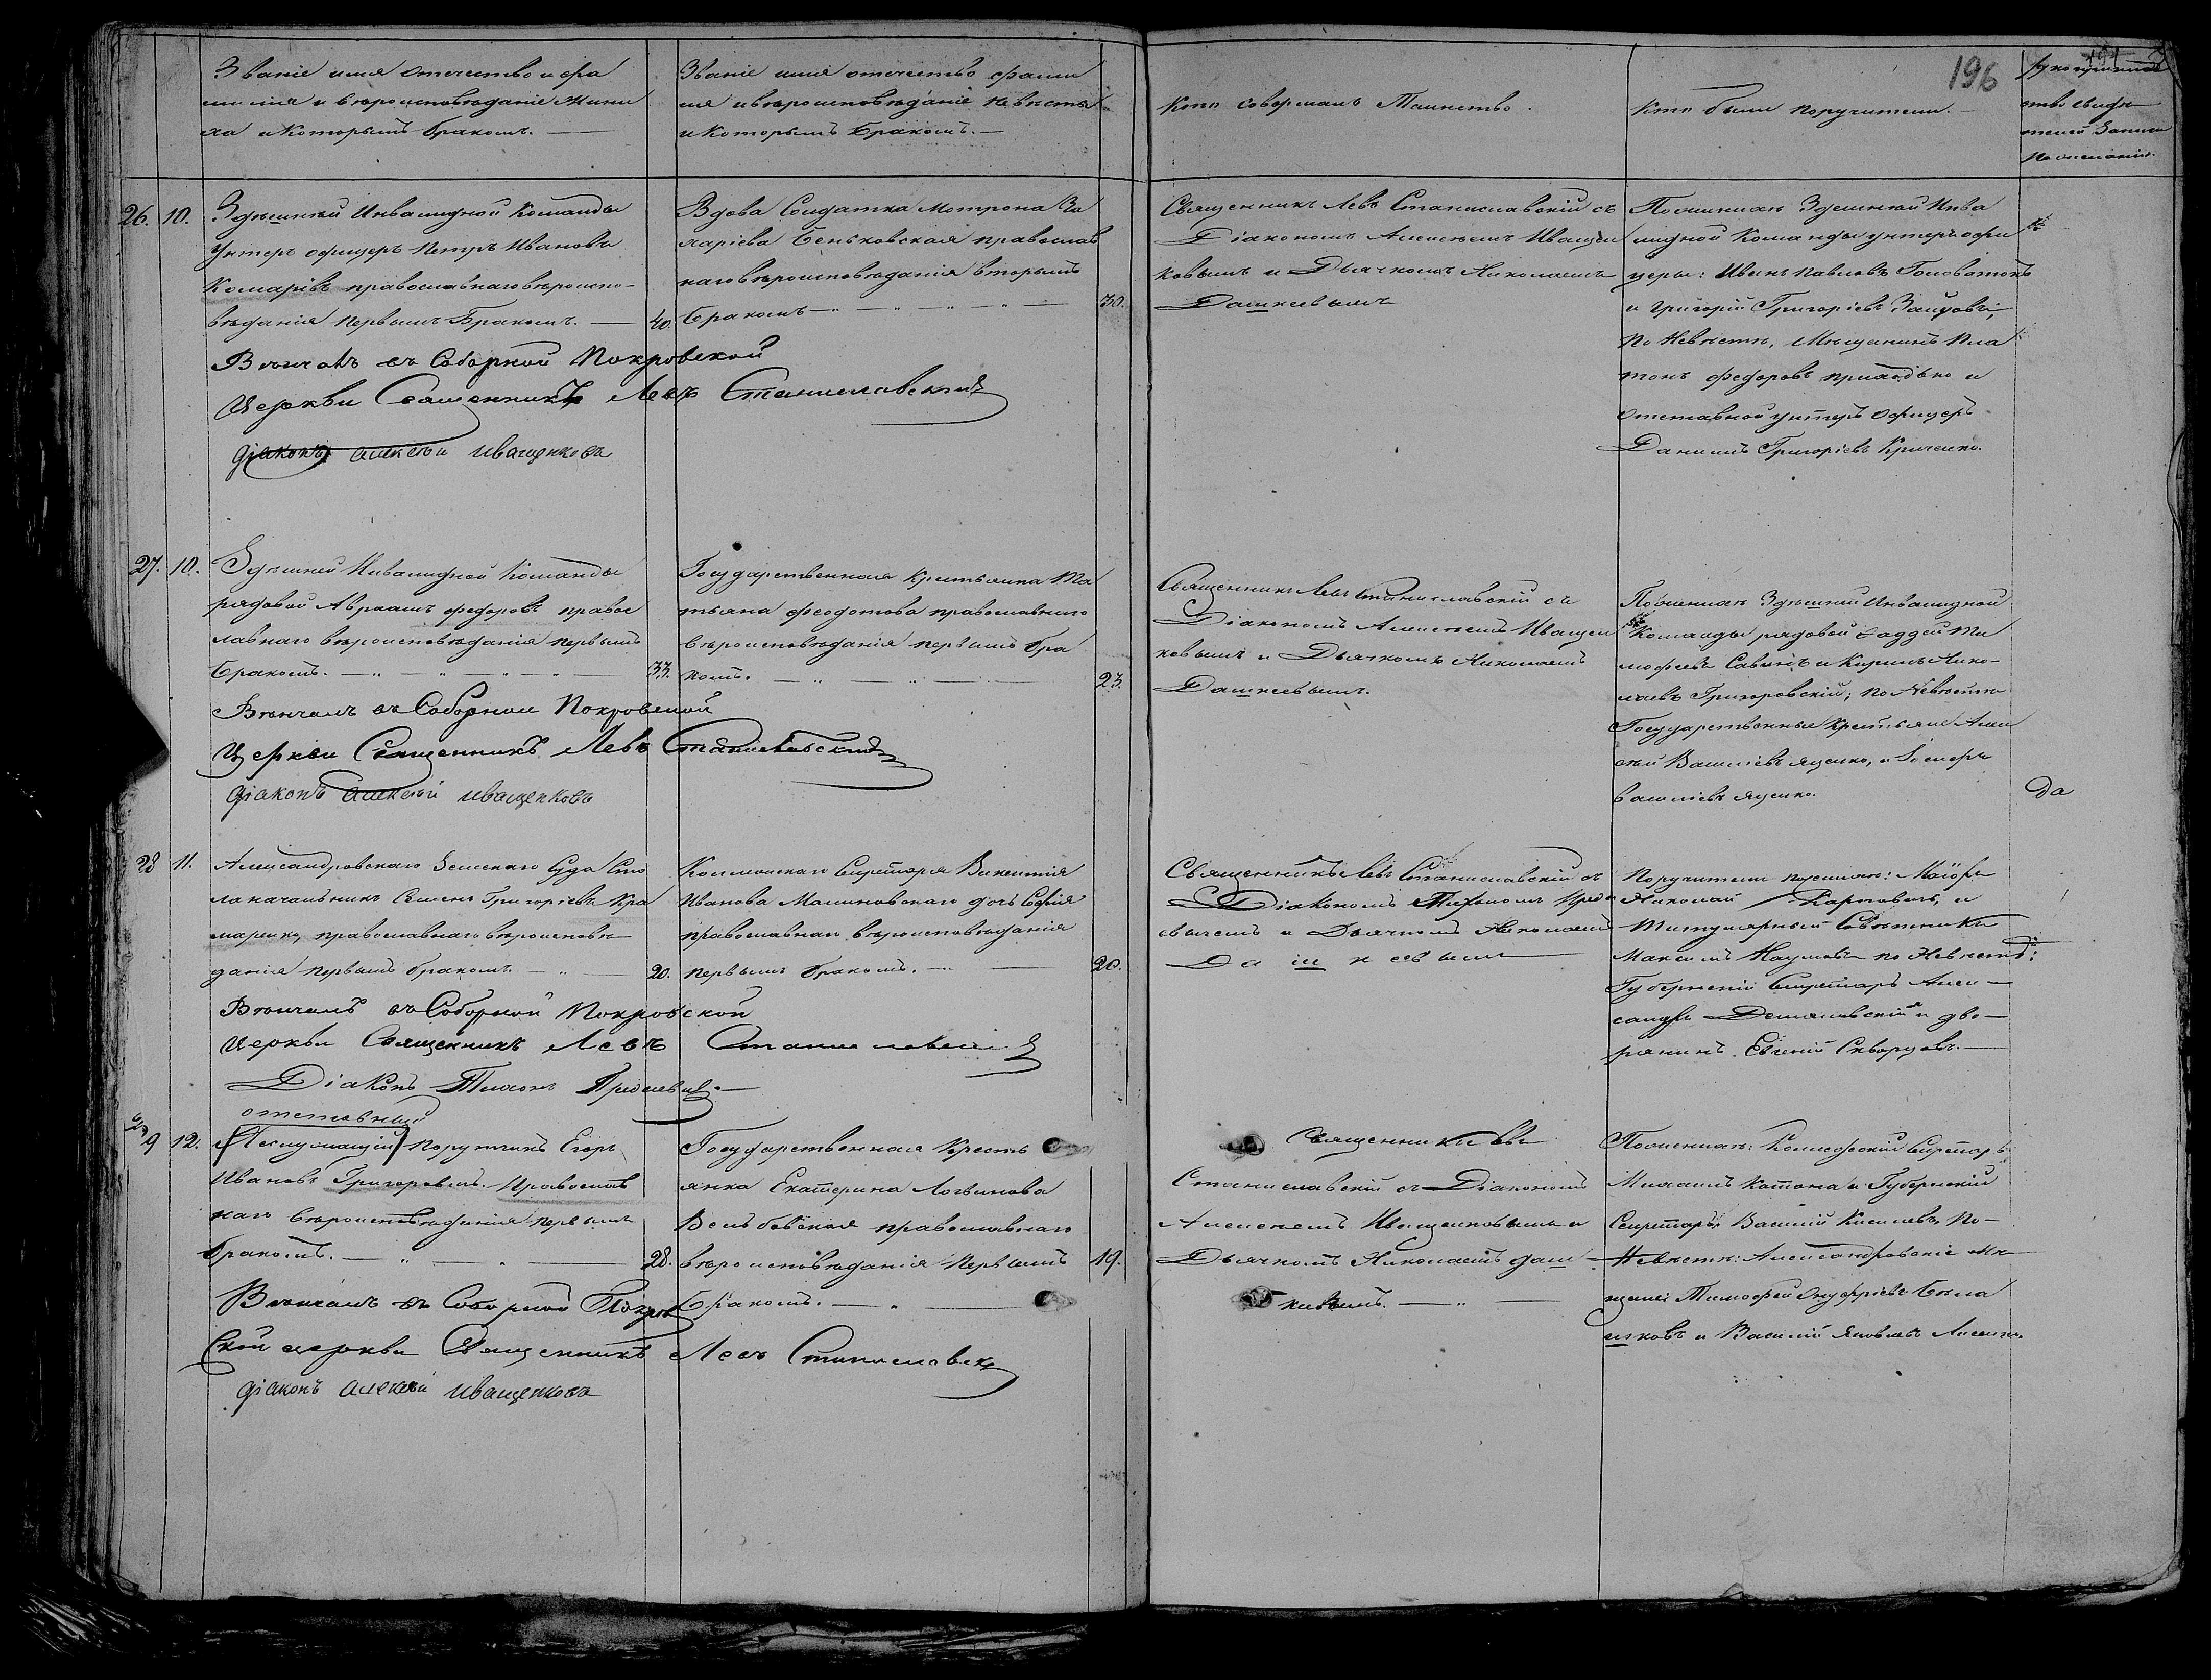 Званіе имя отечество и фа
милія и вероисповѣданіе Жени
ха и Которымъ бракомъ.
Званіе имя отечество фами
лія и вероисповѣданіе невѣсты
и Которымъ бракомъ.
Кто совершалъ Таинство.
Кто были поручители.
196
26. 10.
Здешней Инвалидной Команды
Унтеръ офицеръ Петръ Ивановъ
Комарiвъ православнаго вѣроиспо-
вѣданія первымъ Бракомъ. 40.
Вдова Солдатка Мотрона За
харіева Беньковская православ
наго вѣроисповѣданія вторымъ
бракомъ 30.
Священникъ Левъ Станиславскій съ
Діакономъ Алексѣемъ Иващен
ковымъ и Дьячкомъ Николаемъ
Дашкеевымъ
По женихѣ Здешней Инва
лидной Команды унтеръ офи
церы: Иванъ Павловъ
и Григорій Григоріевъ Зайцовъ,
По Невѣстѣ, Мѣщанинъ Пла
тонъ Федоровъ Приходько и
отставной унтеръ офицеръ
Даніилъ Григоріевъ Криченко.
Венчалъ въ Соборной Покровской
Церкви Священникъ Левъ Станиславскій
діаконъ алексѣй иващенковъ
27. 10.
Здешней Инвалидной Команды
рядовой Авраамъ Федоровъ правос
лавнаго вѣроисповѣданія первымъ
бракомъ. 33.
Государственная Крестьянка Та
тьяна Феодотова православнаго
вѣроисповѣданія первымъ бра
комъ. 23.
Священникъ Левъ Станиславскій съ
Діакономъ Алексѣемъ Иващен
ковымъ и Дьячкомъ Николаемъ
Дашкеевымъ.
По женихѣ Здѣшней Инвалидной
Команды рядовой Фаддей Ти
мофеевъ и Кирилъ Нико-
лаевъ Григоровскій; по Невѣстѣ
Государственные Крестьяне Алек
сѣй Василіевъ Яценко, и
василіевъ Яценко.
да
Венчалъ въ Соборной Покровской
Церкви Священникъ Левъ Станиславскій
діаконъ алексѣй иващенковъ
28 11.
Александровскаго Земскаго Суда Сто
лоначальникъ Семенъ Григоріевъ Кра
маренко, православнаго вѣроисповѣ
данія первымъ бракомъ. 20.
Коллежскаго Секретаря Викентія
Иванова Малиновскаго дочь Софія
православнаго вѣроисповѣданія
первымъ бракомъ. 20.
Священникъ Левъ Станиславскій съ
Діакономъ Тихономъ
и Дьячкомъ Николаемъ
Дашкеевымъ
Поручители по женихѣ: Маіоръ
Николай Карповичъ, и
Титулярный Совѣтникъ
Максимъ Наумовъ по Невѣстѣ:
Губернскій Секретарь Алек
сандръ и дво
рянинъ Евгеній Скворцовъ.
Венчалъ въ Соборной Покровской
Церкви Священникъ Левъ Станиславскій
Діаконъ Тихонъ
29 12.
отставный
(Неслужащій) Поручикъ Егоръ
Ивановъ Григоровичъ. Православ
наго вѣроисповѣданія первымъ
бракомъ. 28.
Государственная Кресть
янка Екатерина Логвинова
православнаго
вѣроисповѣданія Первымъ 19.
Бракомъ.
Священникъ Левъ
Станиславскій съ Діакономъ
Алексѣемъ Иващенковымъ и
Дьячкомъ Николаемъ Даш
кевымъ.
По женихѣ: Коллежскій Секретарь
Михаилъ Катана и Губернскій
Секретарь Василій Киселевъ, По
Невѣстѣ: Александровскіе Мѣ
щане: Тимофей Онуфріевъ
и Василій Яковлевъ
Венчалъ въ Соборной Покров
ской церкви Священникъ Левъ Станиславск
діаконъ алексѣй иващенковъ